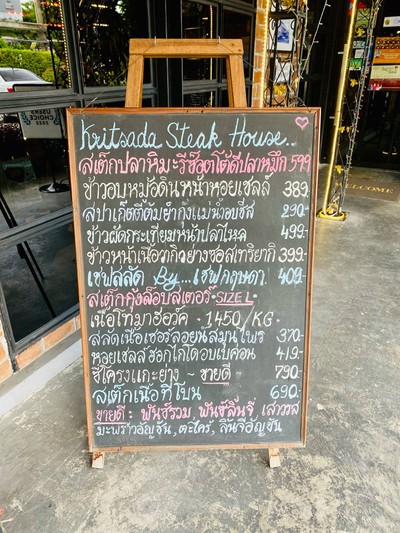 Kritsada Steak House..
สเต็กปลาหิมะรีซ็อตโต้ดีปลาหมึก 599
ข้าวอบหม้อดินหน้าหอยเชลล์ 389.
สปาเก็ตตี้ต้มยำกุ้งแม่น้ำอบชีส 290.-
ข้าวผัดกระเทียมหน้าปลาไหล 499.-
ข้าวหน้าเนื้อวากิวย่างซอสเทริยากิ 399.-
เชฟสลัด By...เชฟกฤษดา. 409.-
สเต็กกุ้งล็อบสเตอร์ •SIZE L•
เนื้อโทมาฮอว์ค • 1450/KG •
สลัดเนื้อเซอร์ลอยน์สมุนไพร 370.-
หอยเชลล์ฮอกไกโดอบเบค่อน 419.-
ซี่โครงแกะย่าง ~ ขายดี - 790.
สเต็กเนื้อทีโบน 690.
ขายดี : พันช์รวม, พันช์ลิ้นจี่, เสาวรส
มะพร้าวอัญชัน, ตะไคร้, ลิ้นจี่อัญชัน
WELCOME